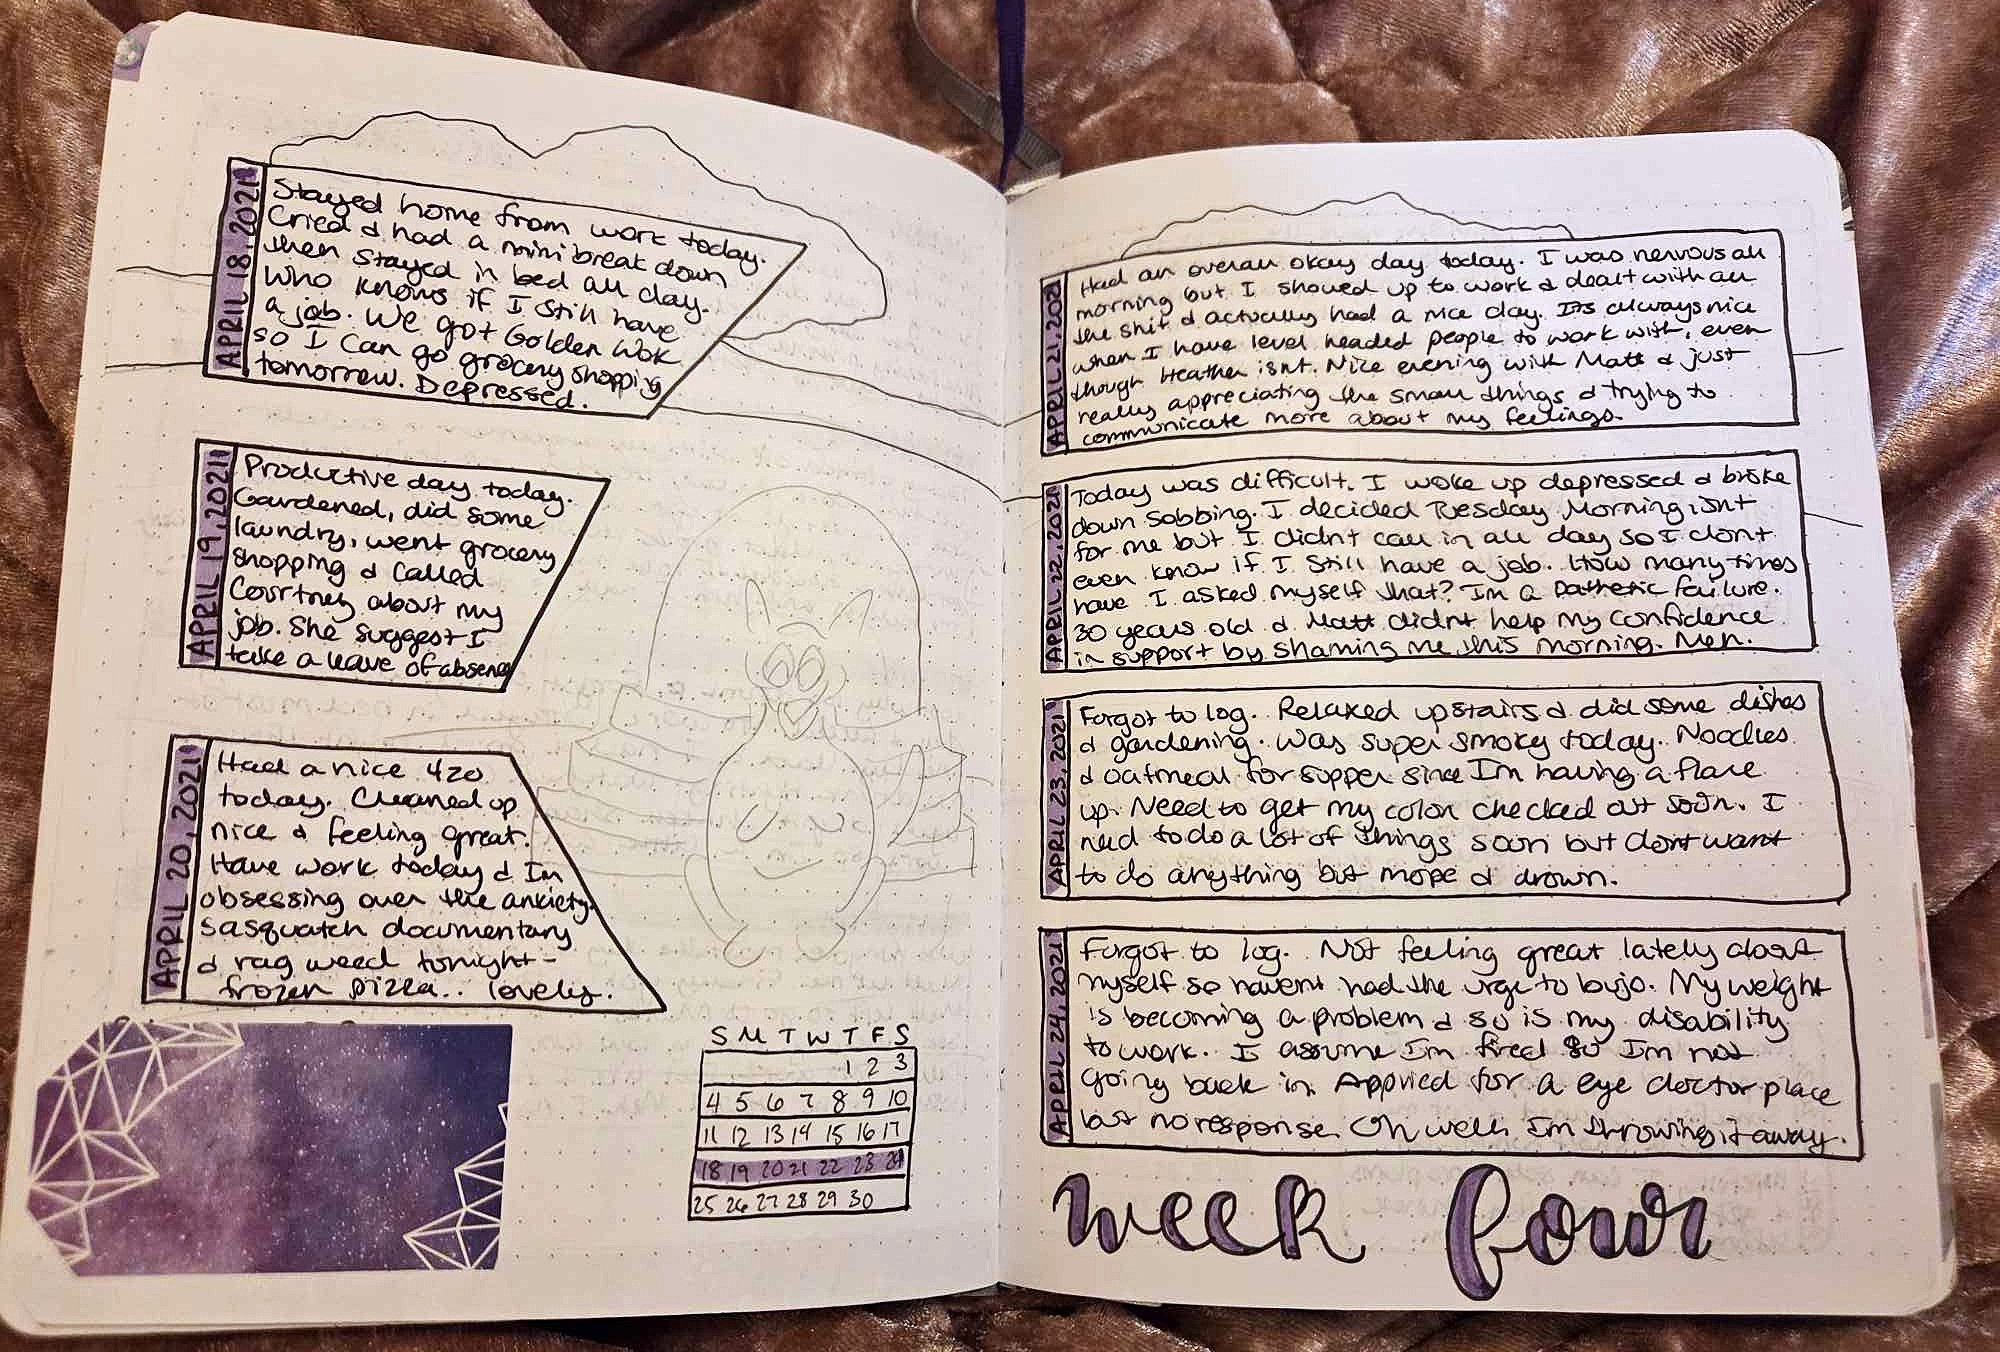 APRIL 18, 2021
Stayed home from work today.
Cried & had a mini break down
then stayed in bed all day.
Who knows if I still have
a job. We got Golden Wok
so I can go grocery shopping
tomorrow. Depressed.
APRIL 19, 2021
Productive day today.
Gardened, did some
laundry, went grocery
shopping & called
Courtney about my
job. She suggest I
take a leave of absence
APRIL 20, 2021
Had a nice 420
today. Cleaned up
nice & feeling great.
Have work today & Im
obsessing over the anxiety.
Sasquatch documentary
& rag weed tonight -
frozen pizza.. lovely.
S M T W T F S
1 2 3
4 5 6 7 8 9 10
11 12 13 14 15 16 17
18 19 20 21 22 23 24
25 26 27 28 29 30
APRIL 21, 2021
Had an overall okay day today. I was nervous all
morning but I showed up to work & dealt with all
the shit & actually had a nice day. Its always nice
when I have level headed people to work with, even
though Heather isnt. Nice evening with Matt & just
really appreciating the small things & trying to
communicate more about my feelings.
APRIL 22, 2021
Today was difficult. I woke up depressed & broke
down sobbing. I decided Tuesday Morning isnt
for me but I didnt call in all day so I dont
even know if I still have a job. How many times
have I asked myself that? Im a Pathetic failure.
30 years old & Matt didnt help my confidence
in support by shaming me this morning. Men.
APRIL 23, 2021
Forgot to log. Relaxed upstairs & did some dishes
& gardening. Was super smoky today. Noodles
& oatmeal for supper since Im having a flare
up. Need to get my colon checked out soon. I
need to do a lot of things soon but dont want
to do anything but mope & drown.
APRIL 24, 2021
Forgot to log. Not feeling great lately about
myself so havent had the urge to bujo. My weight
is becoming a problem & so is my disability
to work. I assume Im fired so Im not
going back in. Applied for a eye doctor place
but no response. Oh well, Im throwing it away.
week four